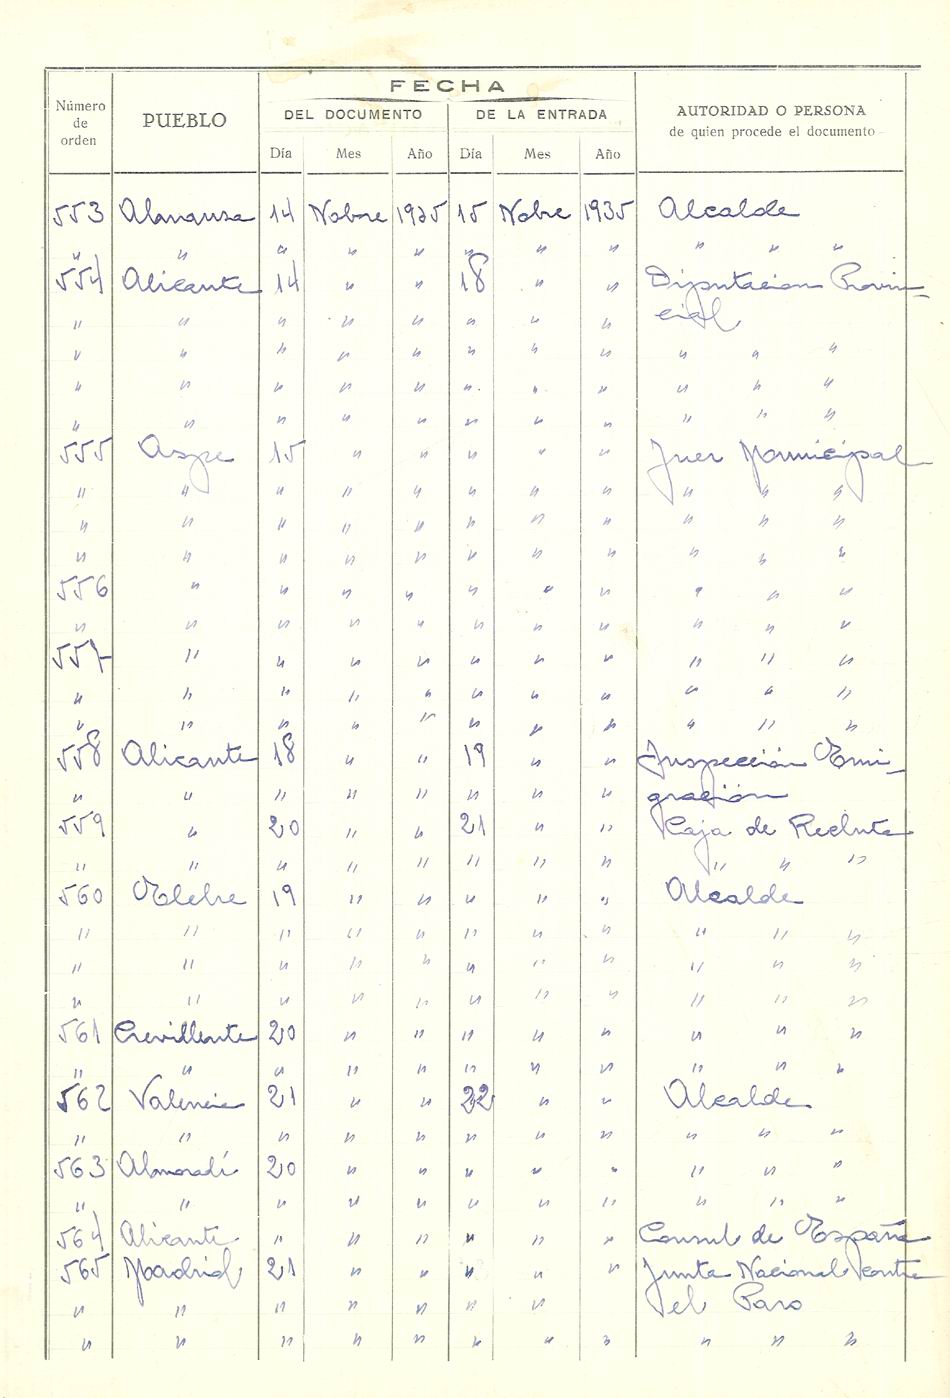 FECHA
Número de orden PUEBLO DEL DOCUMENTO DE LA ENTRADA AUTORIDAD O PERSONA de quien procede el documento
Día Mes Año Día Mes Año
553 Almansa 14 Nobre 1935 15 Nobre 1935 Alcalde
" " " " " " " " " " "
554 Alicante 14 " " 18 " " Diputacion Provin-
" " " " " " " " cial
" " " " " " " " " " "
" " " " " " " " " " "
" " " " " " " " " " "
555 Aspe 15 " " " " " Juez Municipal
" " " " " " " " " " "
" " " " " " " " " " "
" " " " " " " " " " "
556 " " " " " " " " " "
" " " " " " " " " " "
557 " " " " " " " " " "
" " " " " " " " " " "
" " " " " " " " " " "
558 Alicante 18 " " 19 " " Inspección Emi-
" " " " " " " " gración
559 " 20 " " 21 " " Caja de Recluta
" " " " " " " " " " "
560 Elche 19 " " " " " Alcalde
" " " " " " " " " " "
" " " " " " " " " " "
" " " " " " " " " " "
561 Crevillente 20 " " " " " " " "
" " " " " " " " " " "
562 Valencia 21 " " 22 " " Alcalde
" " " " " " " " " " "
563 Almoradí 20 " " " " " " " "
" " " " " " " " " " "
564 Alicante " " " " " " Consul de España
565 Madrid 21 " " " " " Junta Nacional contra
" " " " " " " el Paro
" " " " " " " " " " "